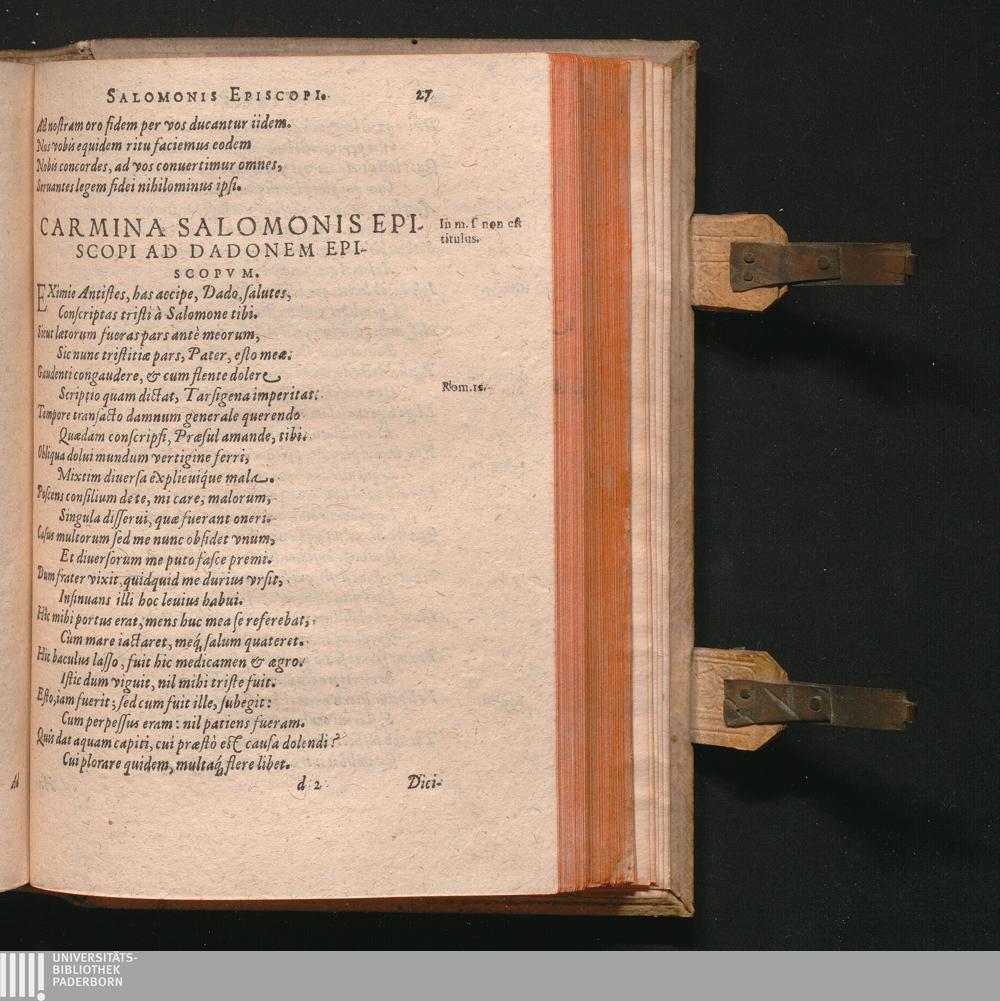 SALOMONIS EPISCOPI. 27
Ad nostram oro fidem per vos ducantur iidem.
Nos vobis equidem ritu faciemus eodem
Nobis concordes, ad vos conuertimur omnes,
Seruantes legem fidei nihilominus ipsi.
CARMINA SALOMONIS EPI-
SCOPI AD DADONEM EPI-
SCOPVM.
In m. s. non est
titulus.
EXimie Antistes, has accipe, Dado, salutes,
Conscriptas tristi à Salomone tibi.
Sicut lætorum fueras pars antè meorum,
Sic nunc tristitiæ pars, Pater, esto meæ.
Gaudenti congaudere, & cum flente dolere
Rom. 12.
Scriptio quam dictat, Tarsigena imperitat:
Tempore transacto damnum generale querendo
Quædam conscripsi, Præsul amande, tibi.
Obliqua dolui mundum vertigine ferri,
Mixtim diuersa explieuiq́ue mala.
Poscens consilium de te, mi care, malorum,
Singula disserui, quæ fuerant oneri.
Casus multorum sed me nunc obsidet vnum,
Et diuersorum me puto fasce premi.
Dum frater vixit, quidquid me durius vrsit,
Insinuans illi hoc leuius habui.
Hic mihi portus erat, mens huc mea se referebat,
Cùm mare iactaret, meq́ salum quateret.
Hic baculus lasso, fuit hic medicamen & ægro.
Istic dum viguit, nil mihi triste fuit.
Esto, iam fuerit; sed cum fuit ille, subegit:
Cum perpessus eram: nil patiens fueram.
Quis dat aquam capiti, cui præstò est causa dolendi?
Cui plorare quidem, multaq́ flere libet.
d 2 Dici-
Ad
UNIVERSITÄTS-
BIBLIOTHEK
PADERBORN